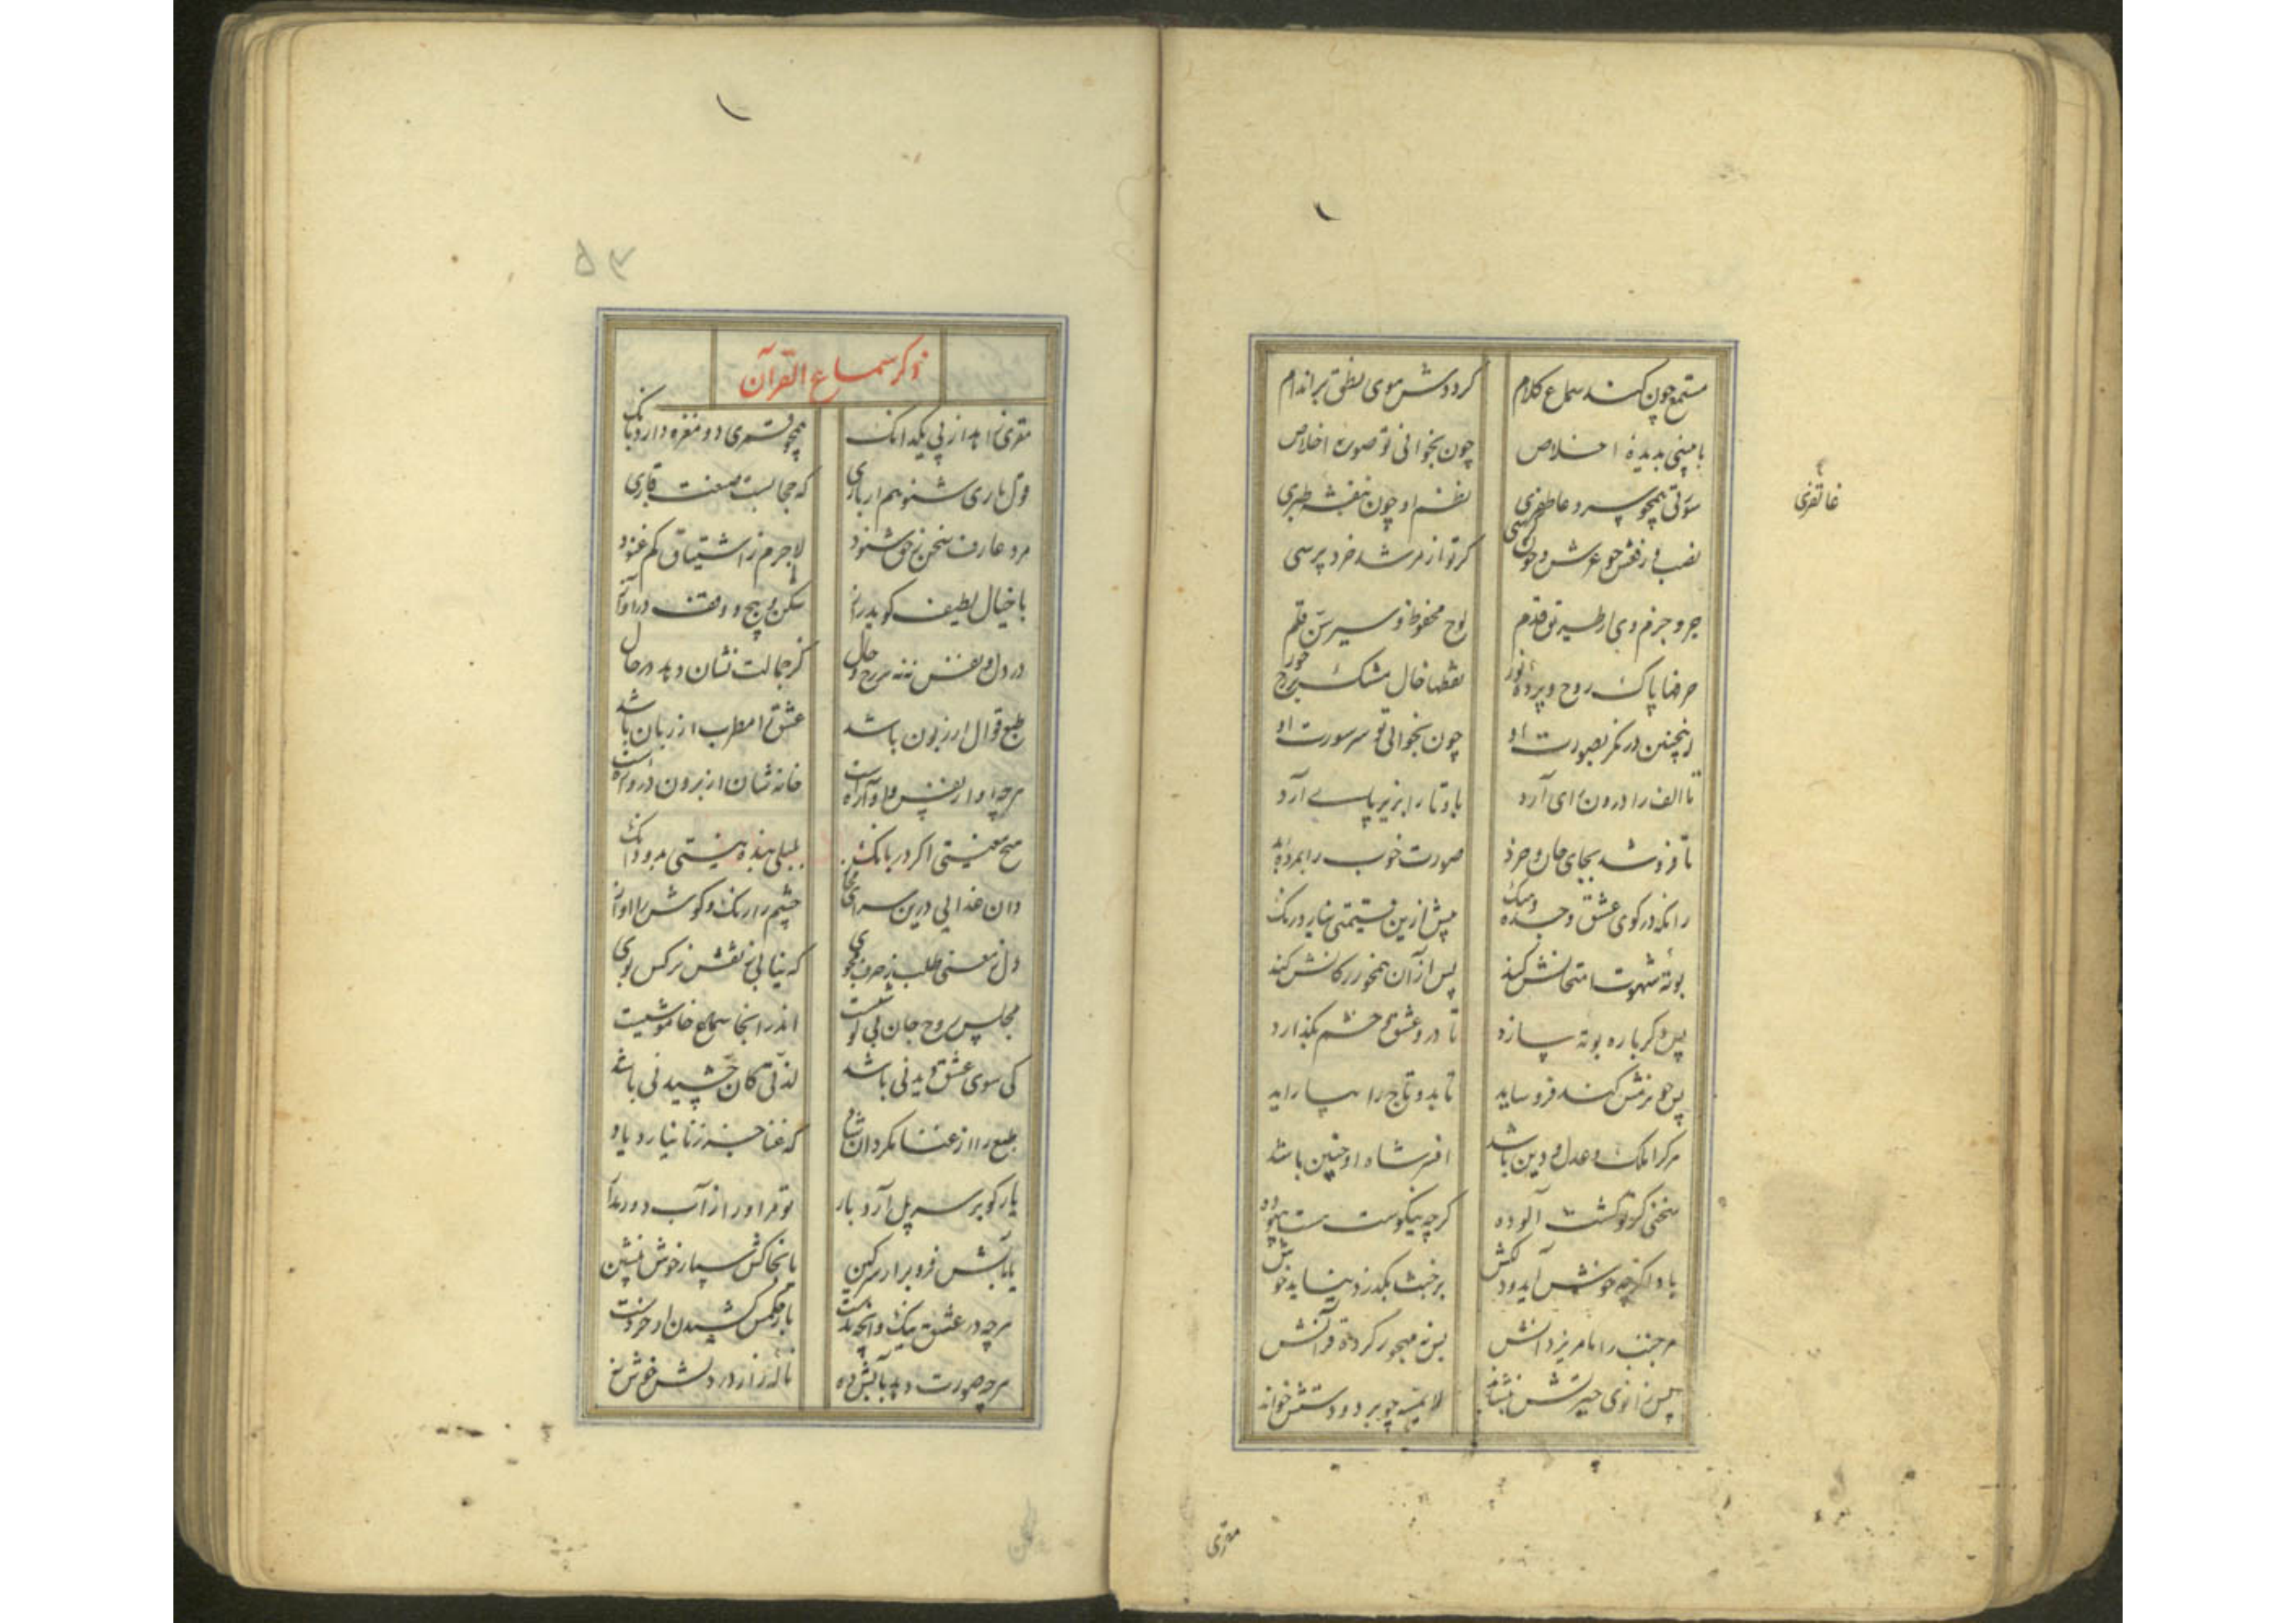 مستمع چون کند سماع کلام
کرددش موی نطق بر اندام
با مپنی بدیدهٔ اخلاص
چون بخوانی تو صورت اخلاص
سوتی همچو سرو عاطفری
نظم او چون بنفشه طبری
غاتفری
نصب و رفعش چو عرش و چون کرسی
کر تو از مرشد خرد پرسی
جر و جزم وی از طریق قدم
لوح محفوظ و سیرسن قلم
حرفها پاک روح و پرده نور
نقطها خال مشک بر رخ حور
اینچنین درنکر بصورت او
چون بخوانی تو سر سورت او
تا الف را درون ای آرد
با و تا را بزیر پای آرد
تا فروشد بجای جان و خرد
صورت خوب را بمرد
زانکه در کوی عشق وجد
پیش ازین قیمتی نیارد رنک
بوتهٔ شهوت امتحانش کند
پس از آن همخور رکانش کند
پس دکرباره بوته سازد
تا در و عشق و خشم بکذارد
پس چو نرمش کند فروساید
تا بدو تاج را بیاراید
مرکرا ملک و عدل و دین باشد
افسر شاه او چنین باشد
سخنی کز تو کشت آلوده
کرچه نیکوست هست بیهوده
باد اکرچه خوش آید و دلکش
بر خبث بکذرد نیاید خوش
مر جنب را بامر یزدانش
بس نه مهجور کرده قرآنش
پس زانوی حیرتش بنشاند
لایمسه چو بر دو دستش خواند
مقری
۵۳
ذکر سماع القرآن
مقری زاهد از پی یکدانک
همچو قمری دو مغزه دارد بانک
قول باری شنو هم از باری
که حجابست صنعت قاری
مرد عارف سخن ز حق شنود
لاجرم ز اشتیاق کم غنود
با خیال لطیف کوید راز
شکن و پیچ و وقف در آواز
در دل و نفس نه نه بر رخ و خال
کز جمالت نشان دهد در حال
طبع قوال را زبون باشد
عشق را مطرب از زبان باشد
هرچه آواز و نقش و آوازست
خانه شان از برون دروازست
هیچ معنیستی اکر در بانک
بلبلی بنده نیستی بدو دانک
دان غدایی درین سرای مجاز
چشم را رنک و کوش را آواز
دل ز معنی طلب ز حرف مجوی
که نیابی ز نقش نرکس بوی
مجلس روح جان بی کوشیست
اندر آنجا سماع خاموشیست
کی سوی عشق دیدنی باشد
لذتی کان چشیدنی باشد
طبع را از غنا مکردان شاد
که غنا جز زنا نیارد یاد
یار کو بر سر پل آرد بار
تو مر او را از آب دور مدار
یا بآبش فرو بر از سر کین
یا بخاکش سپار خوش بنشین
هرچه در عشق نیک وانچه بدست
باز حکمش کشیدن از خردست
هرچه صورت دهد بآبش ده
ناله زار در دلش خوش نه